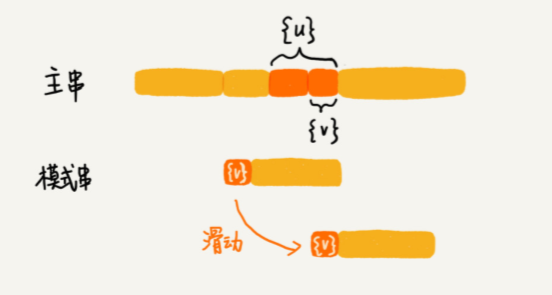 {u}
主串
{v}
模式串
{v}
滑动
{v}